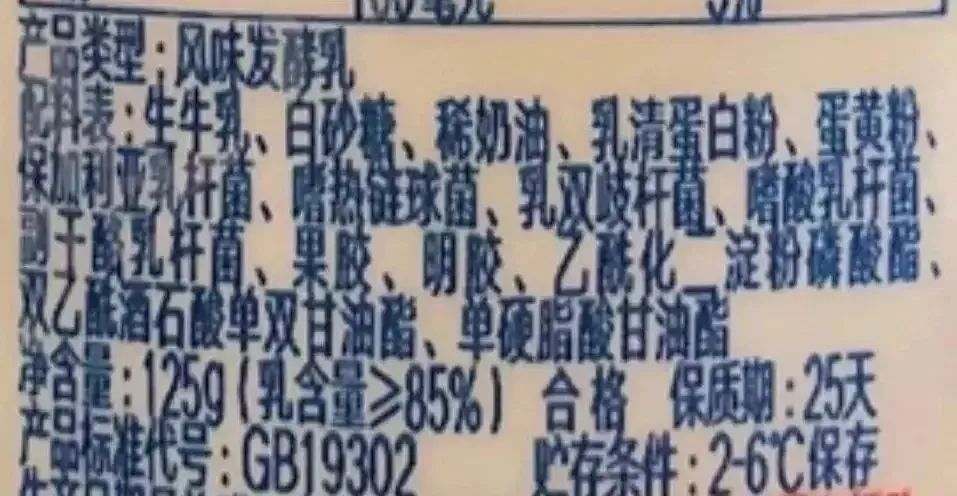 5%
产品类型：风味发酵乳
配料表：生牛乳、白砂糖、稀奶油、乳清蛋白粉、蛋黄粉、
保加利亚乳杆菌、嗜热链球菌、乳双岐杆菌、嗜酸乳杆菌、
副干酪乳杆菌、果胶、明胶、乙酰化二淀粉磷酸酯、
双乙酰酒石酸单双甘油酯、单硬脂酸甘油酯
净含量：125g（乳含量≥85%） 合格 保质期：25天
产品标准代号：GB19302 贮存条件：2-6℃保存